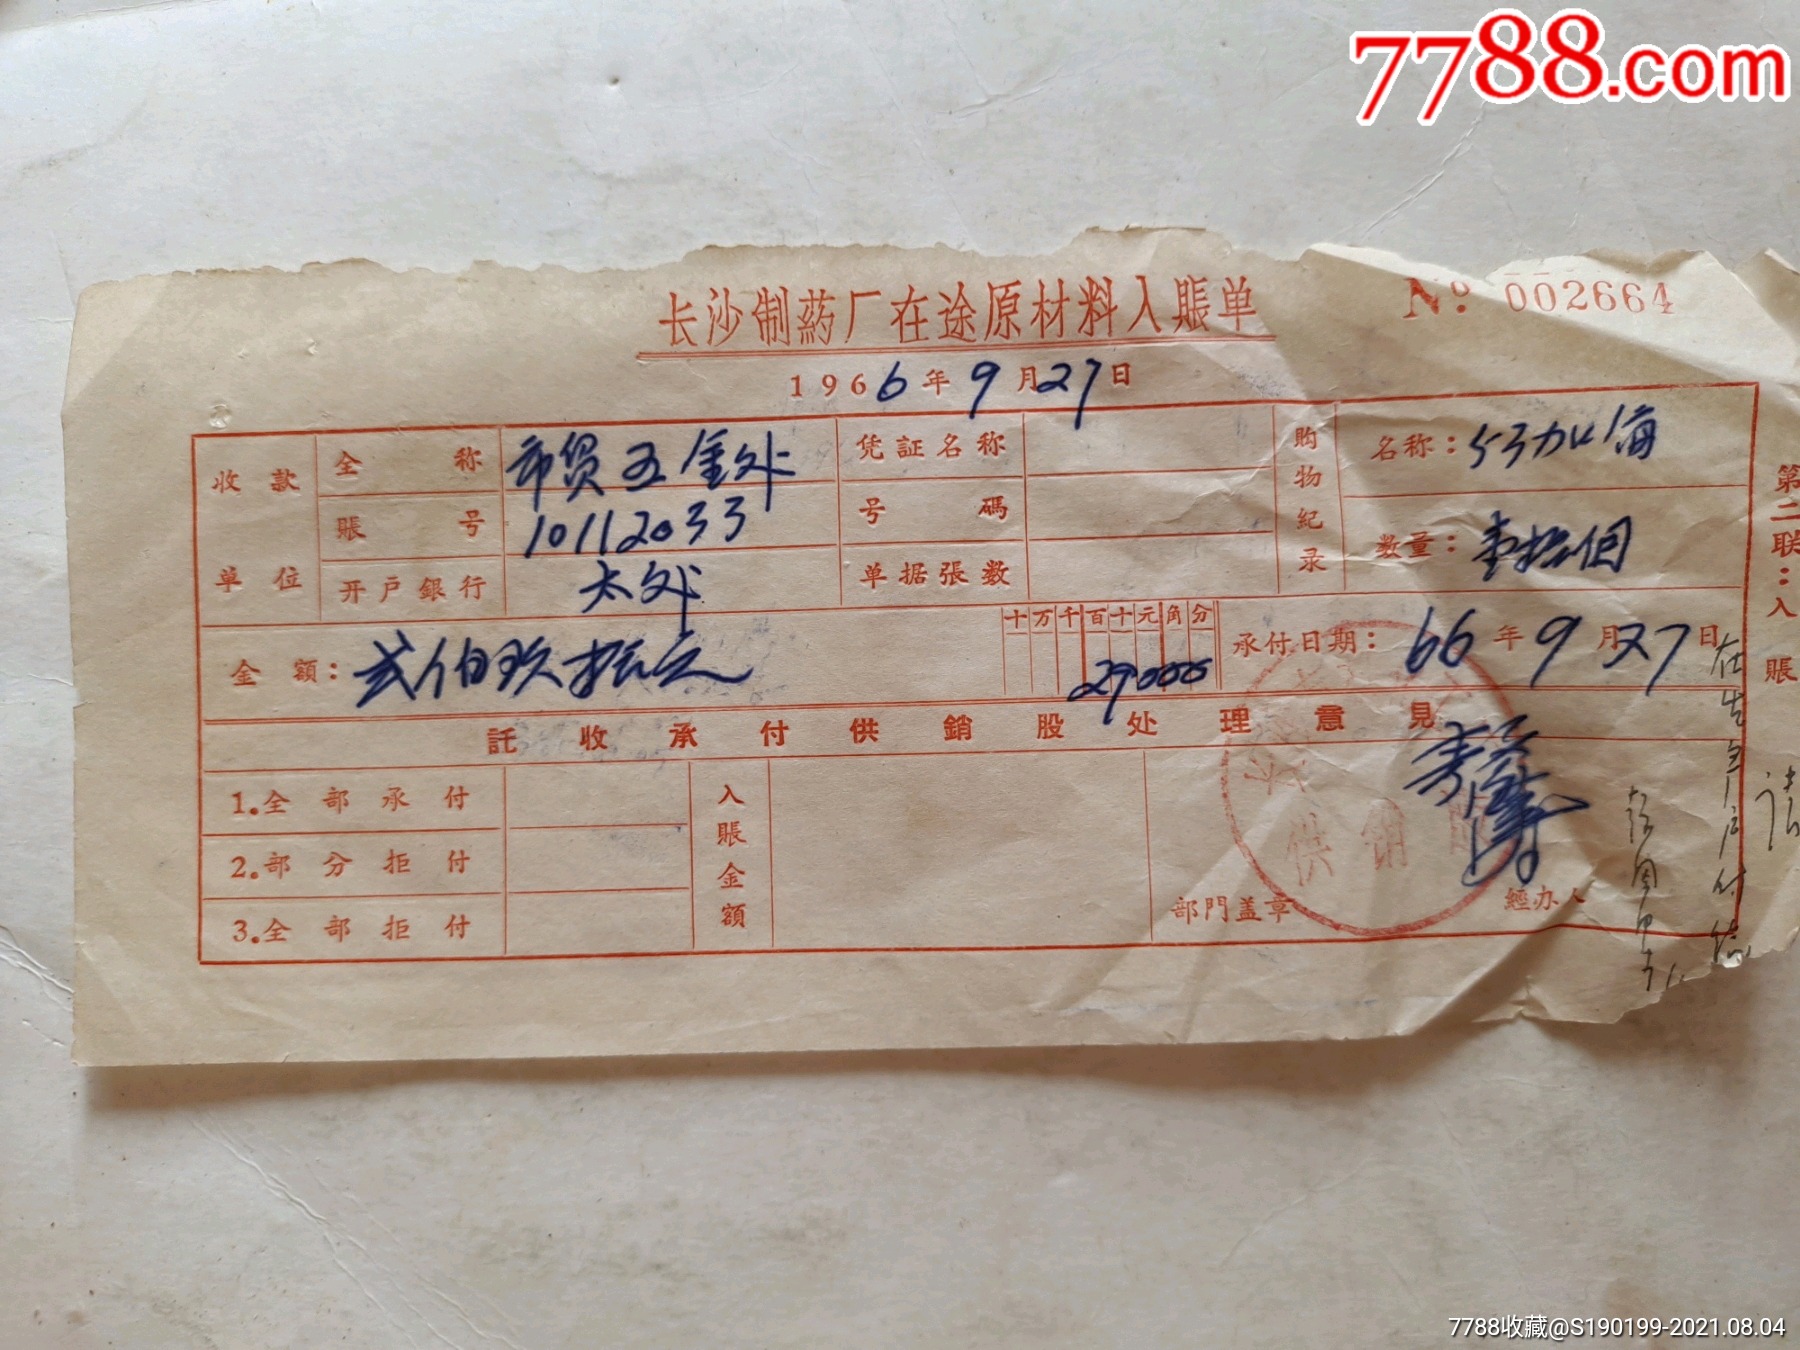 7788.com
长沙制药厂在途原材料入賬单
№ 002664
1966年9月27日
收款单位
全称
市贸五金处
賬号
10112033
开戶銀行
太处
凭証名称
号碼
单据張数
购物紀录
名称：
数量：壹拾個
金額：贰佰玖拾元
十万千百十元角分
29000
承付日期：66年9月27日
託收承付供銷股处理意見
1.全部承付
2.部分拒付
3.全部拒付
入賬金額
供銷
部門盖章
經办人
第二联：入賬
7788收藏@S190199-2021.08.04